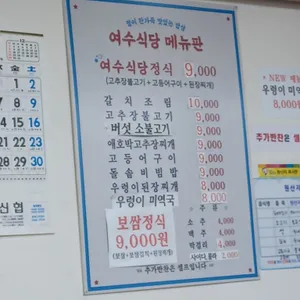 여수식당 메뉴판
여수식당정식 9,000
(고추장불고기 + 고등어구이 + 된장찌개)
갈치조림 10,000
고추장불고기 9,000
버섯 소불고기 9,000
애호박고추장찌개 9,000
고등어구이 9,000
돌솥비빔밥 9,000
우렁이된장찌개 8,000
우렁이 미역국 8,000
보쌈정식
9,000원
주류
소주 4,000
맥주 4,000
막걸리 4,000
사이다, 콜라 2,000
추가반찬은 셀프입니다
NEW 메뉴
우렁이 미
8,000
추가반찬은
水 金 土
1 2
7 8 9
14 15 16
21 22 23
28 29 30
신협